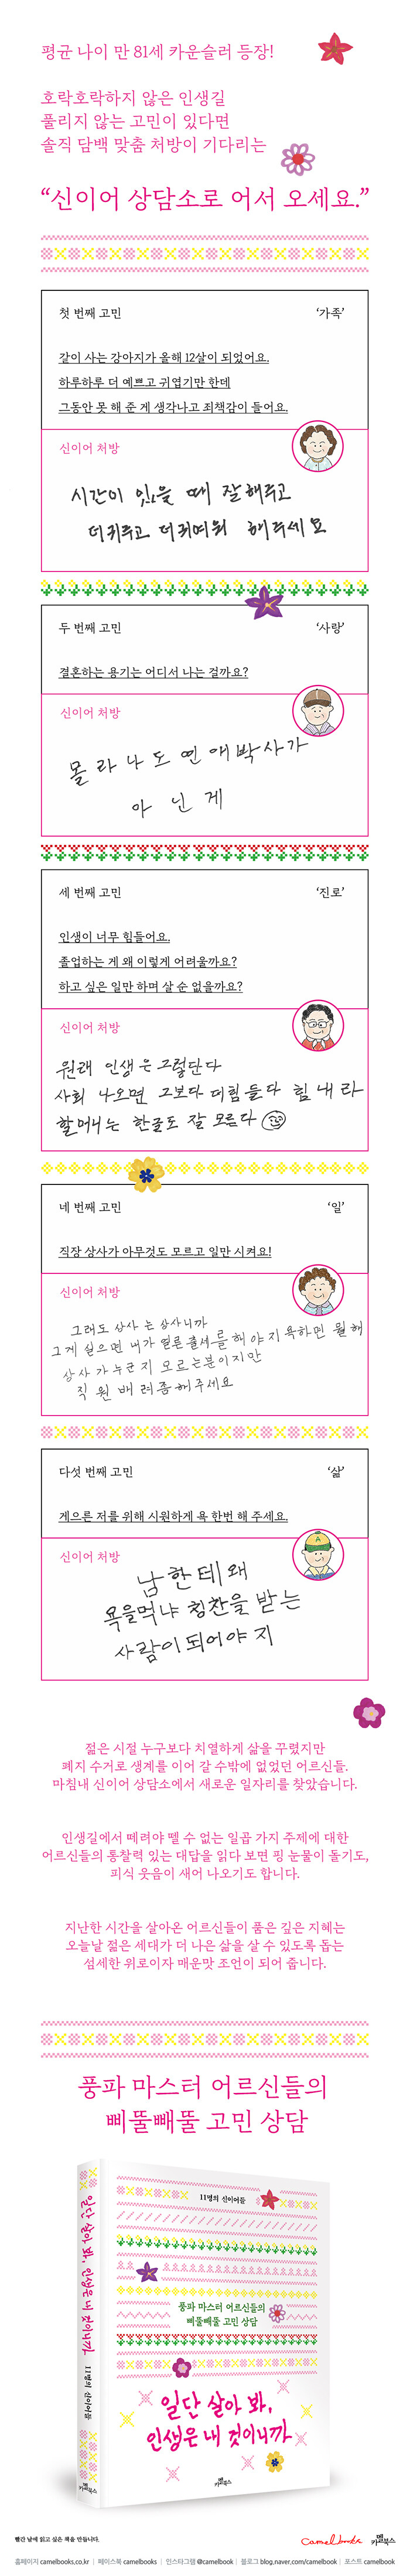 평균 나이 만 81세 카운슬러 등장!
호락호락하지 않은 인생길
풀리지 않는 고민이 있다면
솔직 담백 맞춤 처방이 기다리는
“신이어 상담소로 어서 오세요.”
첫 번째 고민 ‘가족’
같이 사는 강아지가 올해 12살이 되었어요.
하루하루 더 예쁘고 귀엽기만 한데
그동안 못 해 준 게 생각나고 죄책감이 들어요.
신이어 처방
시간이 있을 때 잘해주고
더귀주고 더귀여워 해주세요
두 번째 고민 ‘사랑’
결혼하는 용기는 어디서 나는 걸까요?
신이어 처방
몰라 나도 연애박사가
아닌게
세 번째 고민 ‘진로’
인생이 너무 힘들어요.
졸업하는 게 왜 이렇게 어려울까요?
하고 싶은 일만 하며 살 순 없을까요?
신이어 처방
원래 인생은 그렇단다
사회 나오면 그보다 더힘들다 힘내라
할머니는 한글도 잘 모른다
네 번째 고민 ‘일’
직장 상사가 아무것도 모르고 일만 시켜요!
신이어 처방
그래도 상사는 상사니까
그게 싫으면 내가 얼른 출세를 해야지 욕하면 뭘해
상사가 누군지 모르는분이지만
직원 배려좀해주세요
다섯 번째 고민 ‘삶’
게으른 저를 위해 시원하게 욕 한번 해 주세요.
신이어 처방
남한테 왜
욕을먹냐 칭찬을 받는
사람이 되어야지
젊은 시절 누구보다 치열하게 삶을 꾸렸지만
폐지 수거로 생계를 이어 갈 수밖에 없었던 어르신들.
마침내 신이어 상담소에서 새로운 일자리를 찾았습니다.
인생길에서 떼려야 뗄 수 없는 일곱 가지 주제에 대한
어르신들의 통찰력 있는 대답을 읽다 보면 핑 눈물이 돌기도,
피식 웃음이 새어 나오기도 합니다.
지난한 시간을 살아온 어르신들이 품은 깊은 지혜는
오늘날 젊은 세대가 더 나은 삶을 살 수 있도록 돕는
섬세한 위로이자 매운맛 조언이 되어 줍니다.
풍파 마스터 어르신들의
삐뚤빼뚤 고민 상담
일단 살아 봐, 인생은 내 것이니까
11명의 신이어들
카멜북스
11명의 신이어들
풍파 마스터 어르신들의
삐뚤빼뚤 고민 상담
일단 살아 봐,
인생은 내 것이니까
카멜북스
빨간 날에 읽고 싶은 책을 만듭니다.
camelbooks 카멜북스
홈페이지 camelbooks.co.kr | 페이스북 camelbooks | 인스타그램 @camelbook | 블로그 blog.naver.com/camelbook | 포스트 camelbook